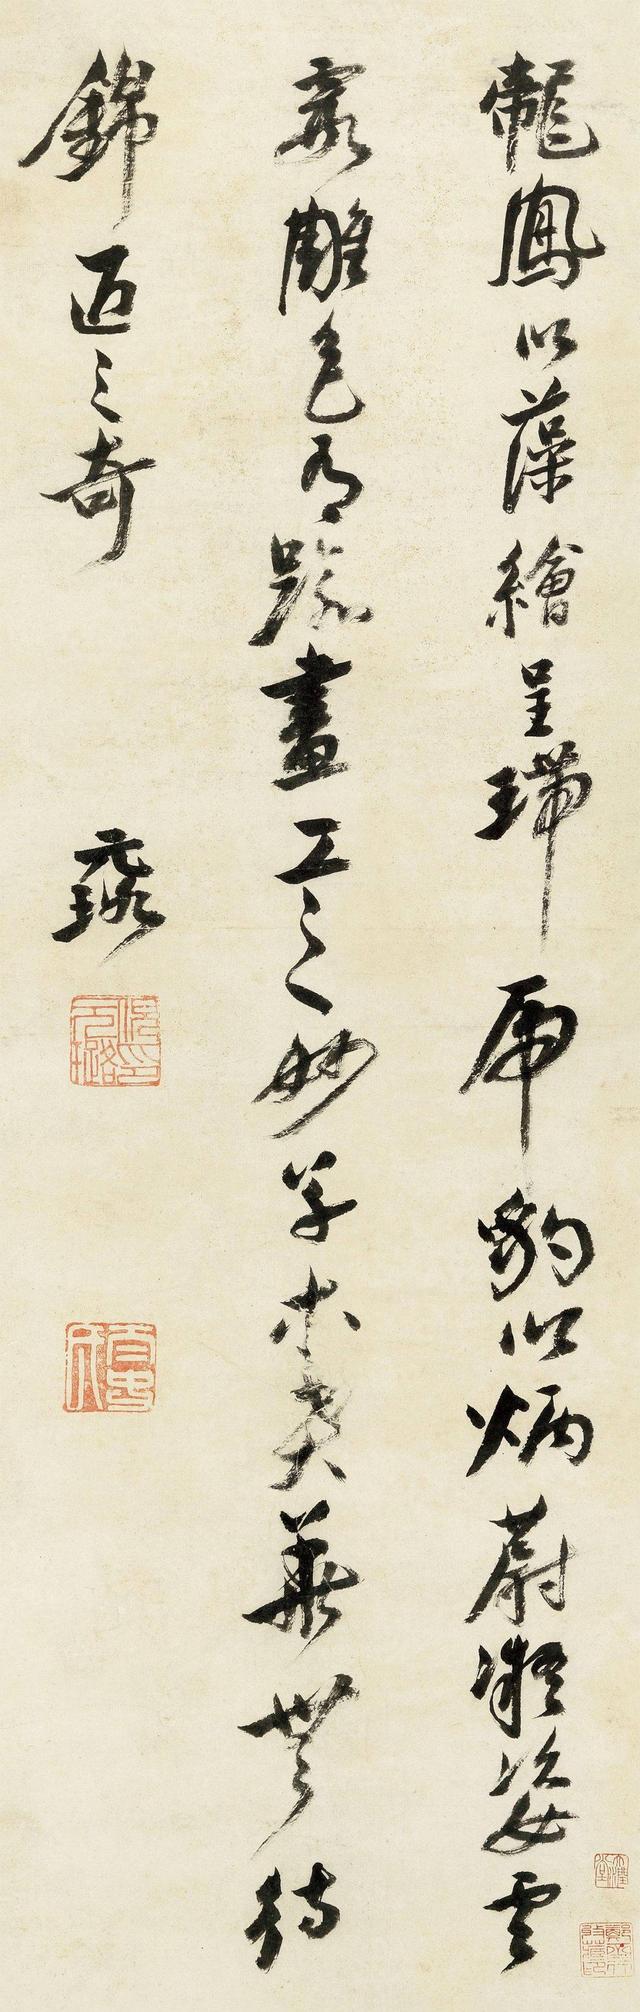 龍鳳以藻繪呈瑞虎豹以炳蔚凝姿雲
霞雕色有踰畫工之妙草木賁華無待
錦匠之奇
元璐
倪元璐印